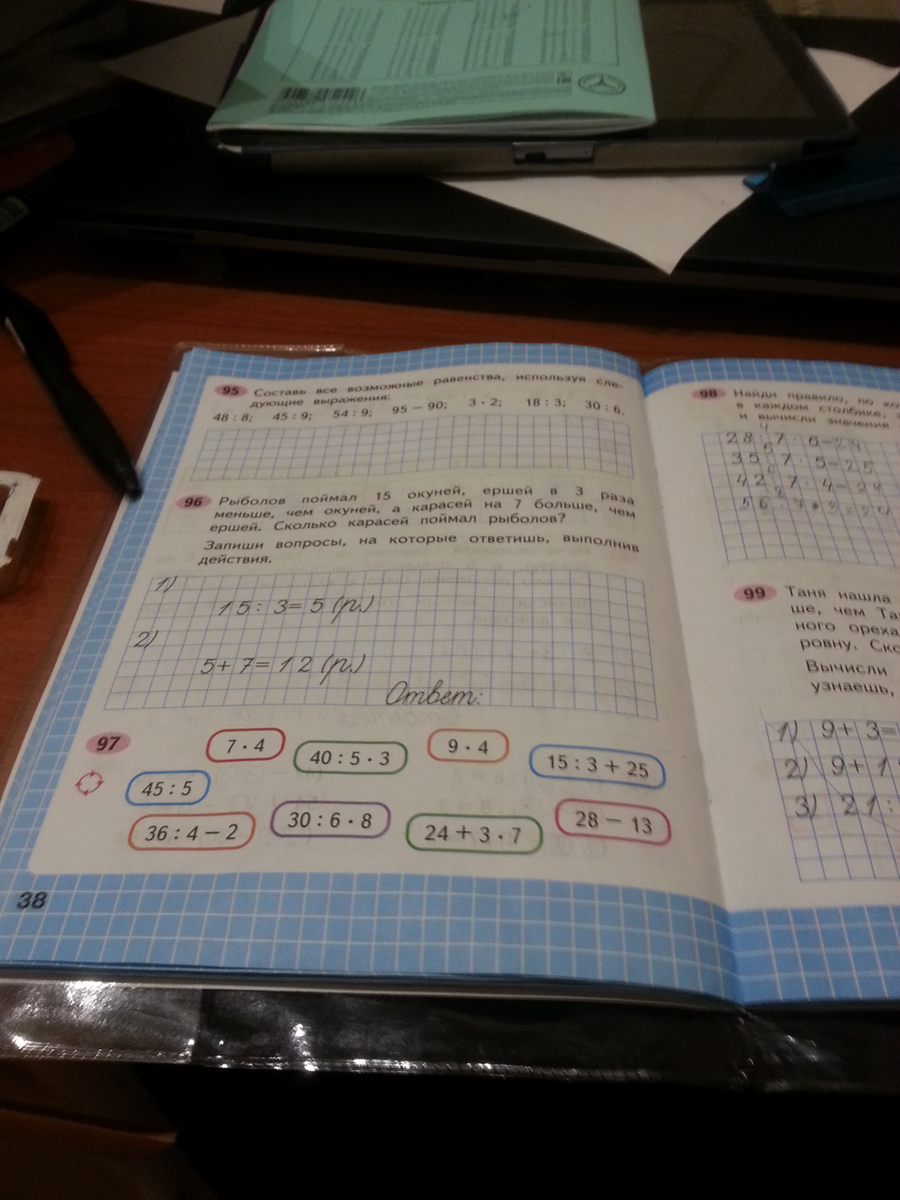 95 Составь все возможные равенства, используя сле-
дующие выражения:
48 : 8; 45 : 9; 54 : 9; 95 − 90; 3 · 2; 18 : 3; 30 : 6.
96 Рыболов поймал 15 окуней, ершей в 3 раза
меньше, чем окуней, а карасей на 7 больше, чем
ершей. Сколько карасей поймал рыболов?
Запиши вопросы, на которые ответишь, выполнив
действия.
1)
15 : 3 = 5 (р.)
2)
5 + 7 = 12 (р.)
Ответ:
97
7 · 4
40 : 5 · 3
9 · 4
15 : 3 + 25
45 : 5
36 : 4 − 2
30 : 6 · 8
24 + 3 · 7
28 − 13
38
98 Найди правило, по
в каждом столбике,
и вычисли значения
28 : 7 · 6 = 24
35 : 7 · 5 = 25
42 : 7 · 4 = 24
99 Таня нашла
ше, чем
ного ореха
ровну.
Вычисли
узнаешь,
1) 9 + 3 =
2) 9 + 1
3) 21 :